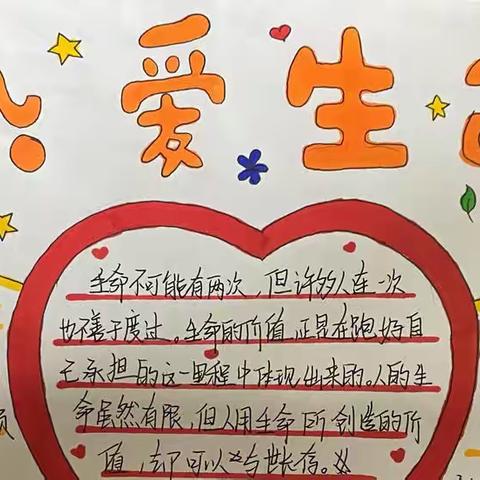 爱生
生命不可能有两次，但许多人连一次
也不善于度过。生命的价值，正是在跑好自
己承担的这一里程中体现出来的。人的生
命虽然有限，但人用生命所创造的价
值，却可以与世长存。